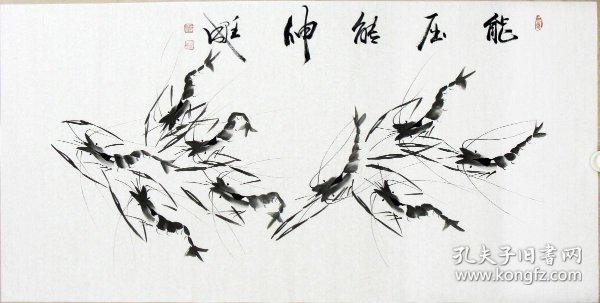 能屈能伸
孔夫子旧书网
www.kongfz.com